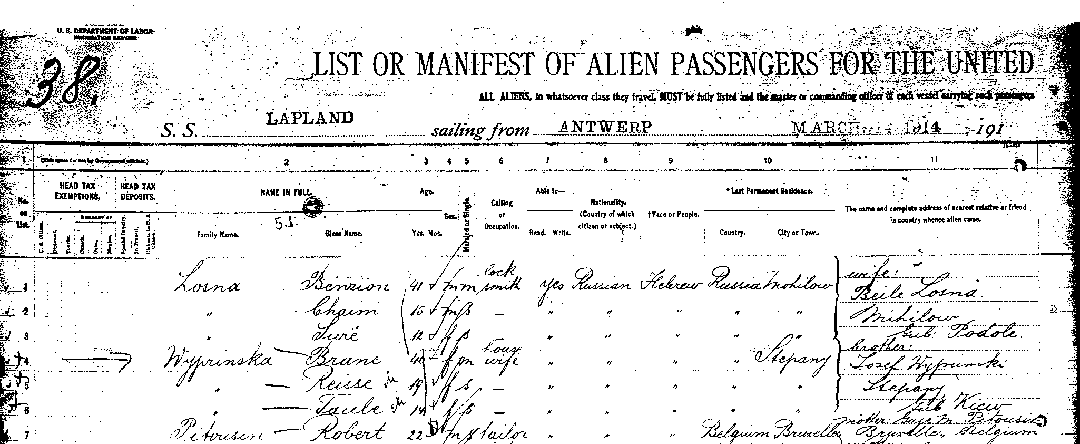 U. S. DEPARTMENT OF LABOR
IMMIGRATION SERVICE
38.
LIST OR MANIFEST OF ALIEN PASSENGERS FOR THE UNITED
ALL ALIENS, in whatsoever class they travel, MUST be fully listed and the master or commanding officer of each vessel carrying such passengers
S. S. LAPLAND sailing from ANTWERP MARCH 1914, 191
1 2 3 4 5 6 7 8 9 10 11
No. on List. HEAD TAX EXEMPTIONS. HEAD TAX DEPOSITS. NAME IN FULL. Age. Sex. Married or Single. Calling or Occupation. Able to— Nationality. (Country of which citizen or subject.) †Race or People. *Last Permanent Residence. The name and complete address of nearest relative or friend in country whence alien came.
51
Family Name. Given Name. Yrs. Mos. Read. Write. Country. City or Town.
1 Losna Benzion 41 m m lock smith yes Russian Hebrew Russia Mohilow wife: Beile Losna
2 " Chaim 15 m s - " " " " " Mohilow
3 " Suré f s - " " " " " Gub. Podole
4 Wyprinska Brane f m house wife " " " " Stepany brother: Josef Wyprinski
5 " Reisse f s - " " " " " Stepany
6 " Taube f s - " " " " " Gub Kiew
7 Petersen Robert 22 m s tailor " " " Belgium Bruxelles Belgium